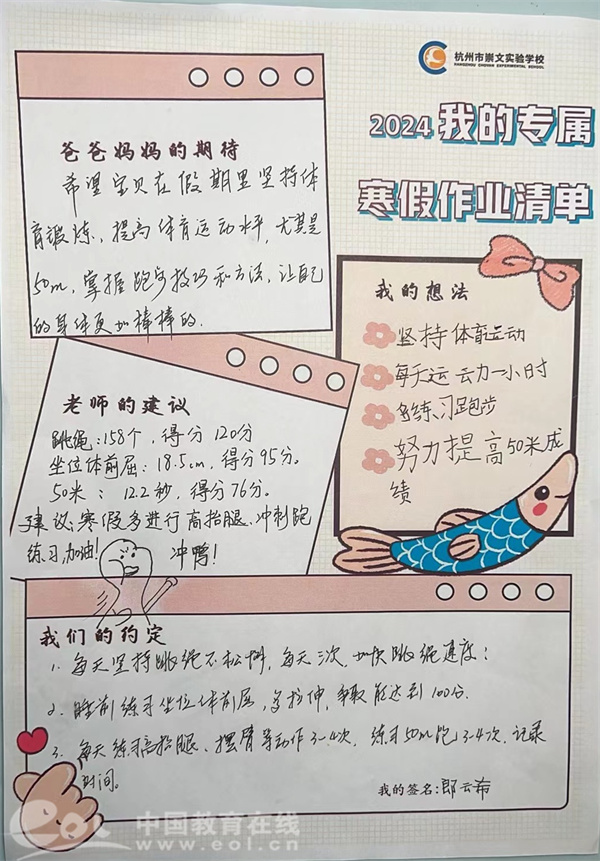 杭州市崇文实验学校
HANGZHOU CHONGWEN EXPERIMENTAL SCHOOL
2024 我的专属
寒假作业清单
爸爸妈妈的期待
希望宝贝在假期里坚持体
育锻炼,提高体育运动水平,尤其是
50m,掌握跑步技巧和方法,让自己
的身体更加棒棒的.
我的想法
坚持体育运动
每天运动一小时
多练习跑步
努力提高50米成
绩
老师的建议
跳绳:158个,得分120分
坐位体前屈:18.5cm,得分95分。
50米:12.2秒,得分76分。
建议:寒假多进行高抬腿、冲刺跑
练习,加油! 冲鸭!
我们的约定
1. 每天坚持跳绳不松懈,每天三次,加快跳绳速度;
2. 睡前练习坐位体前屈,多拉伸,争取能达到100分.
3. 每天练习高抬腿、摆臂等动作3-4次,练习50m跑3-4次,记录
时间。
我的签名:郎云希
eol 中国教育在线
www.eol.cn